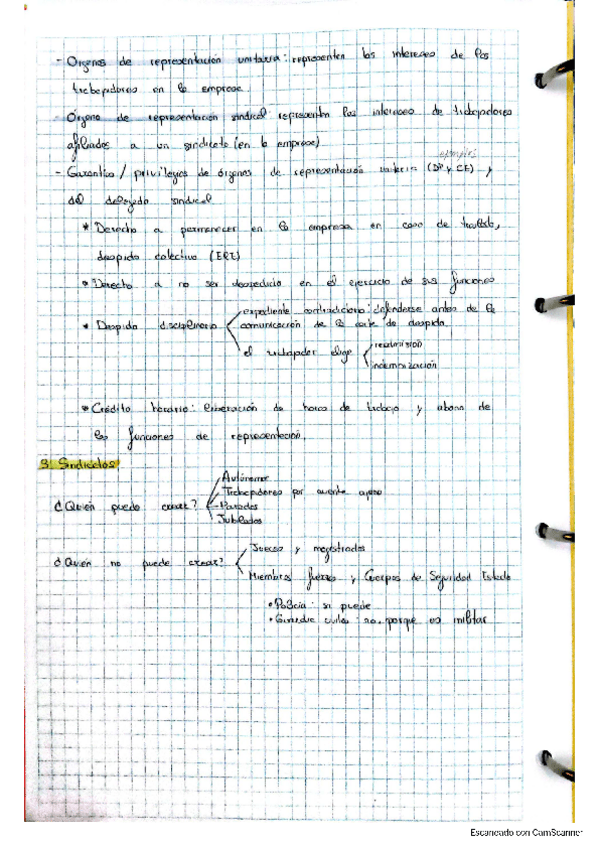 - Órganos de representación unitaria: representan los intereses de los
trabajadores en la empresa
- Órgano de representación sindical representan los intereses de trabajadores
afiliados a un sindicato (en la empresa)
- Garantías / privilegios de órganos de representación unitaria (DP y CE) y
del delegado sindical
* Derecho a permanecer en la empresa en caso de traslado,
despido colectivo (ERE)
* Derecho a no ser despedido en el ejercicio de sus funciones
expediente contradictorio: defenderse antes de la
* Despido disciplinario comunicación de la carta de despido.
el trabajador elige readmisión
indemnización
* Crédito horario: liberación de horas de trabajo y abono de
las funciones de representación.
3. Sindicatos
Autónomos
Trabajadores por cuenta ajena
¿Quién puede crear? Parados
Jubilados
Jueces y magistrados
¿Quién no puede crear?
Miembros fuerzas y Cuerpos de Seguridad Estado
• Policía: si puede
• Guardia civil: no, porque es militar
Escaneado con CamScanner